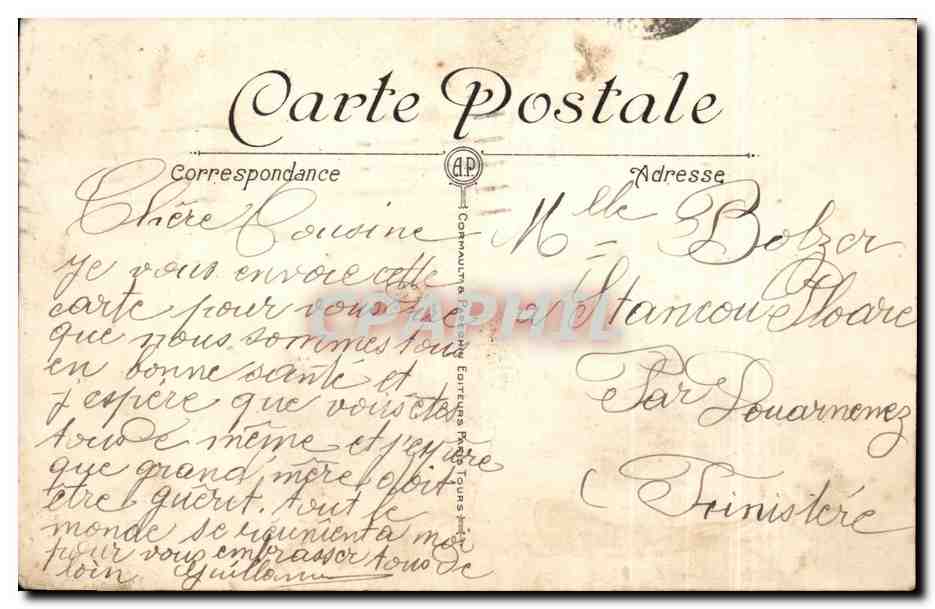 Carte Postale
A.P
Correspondance
Adresse
Chère Cousine
Je vous envoie cette
carte pour vous dire
que nous sommes tous
en bonne santé et
j'espère que vous êtes
tous de même et j'espère
que grand mère doit
être guérit. tout le
monde se réunient a moi
pour vous embrasser tous de
loin Guillaume
CORMAULT & PAPEGHIN EDITEURS PARIS TOURS
Mlle Bolzer
a Stancou Ploare
Par Douarnenez
(Finistére
CPAPHIL